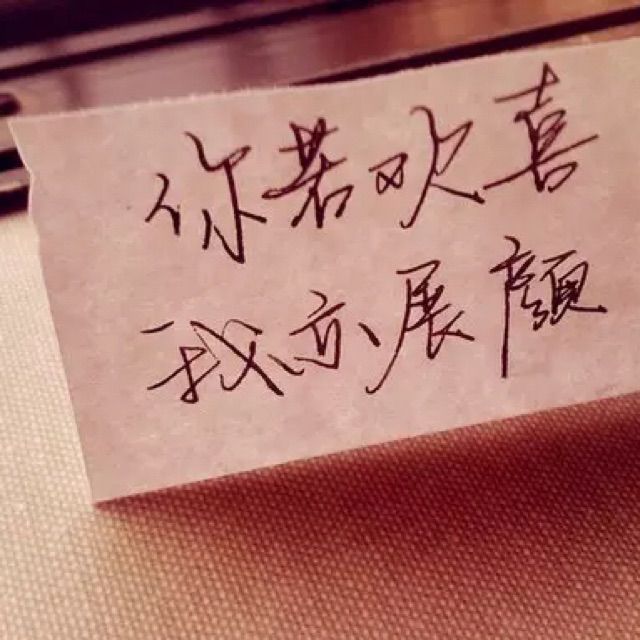 你若欢喜
我亦展颜